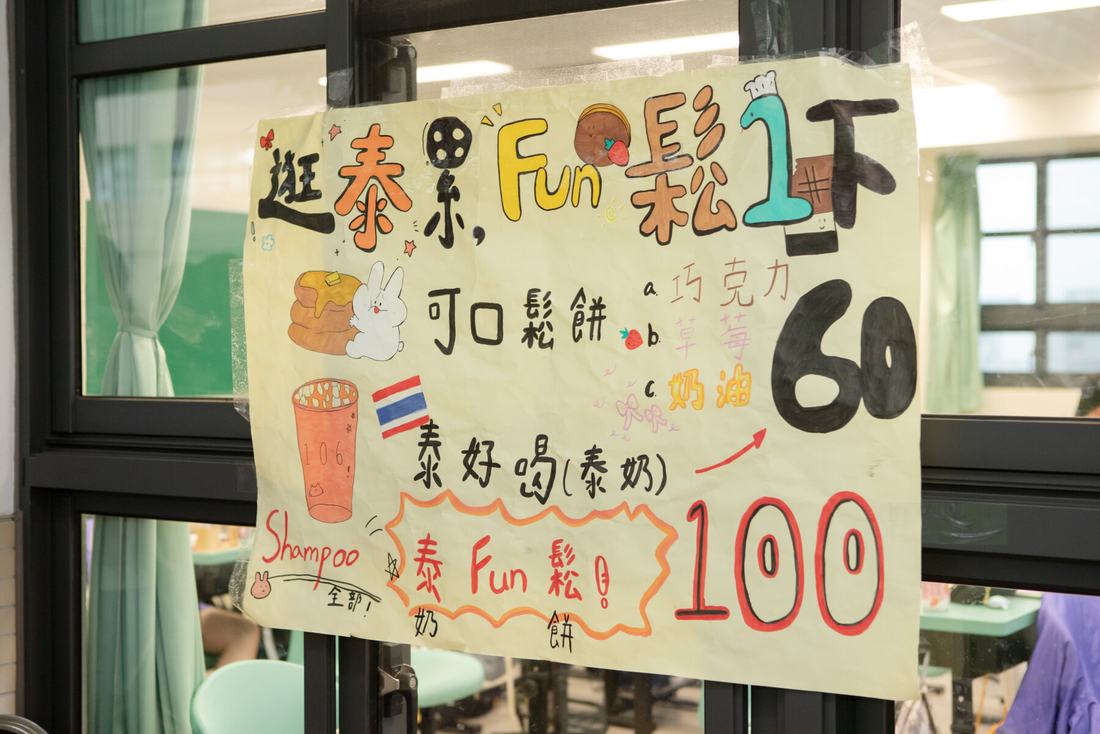 逛泰累,Fun鬆1下
可口鬆餅
a.巧克力
b.草莓
c.奶油
60
106
泰好喝(泰奶)
Shampoo
全部!
泰Fun鬆!
奶 餅
100